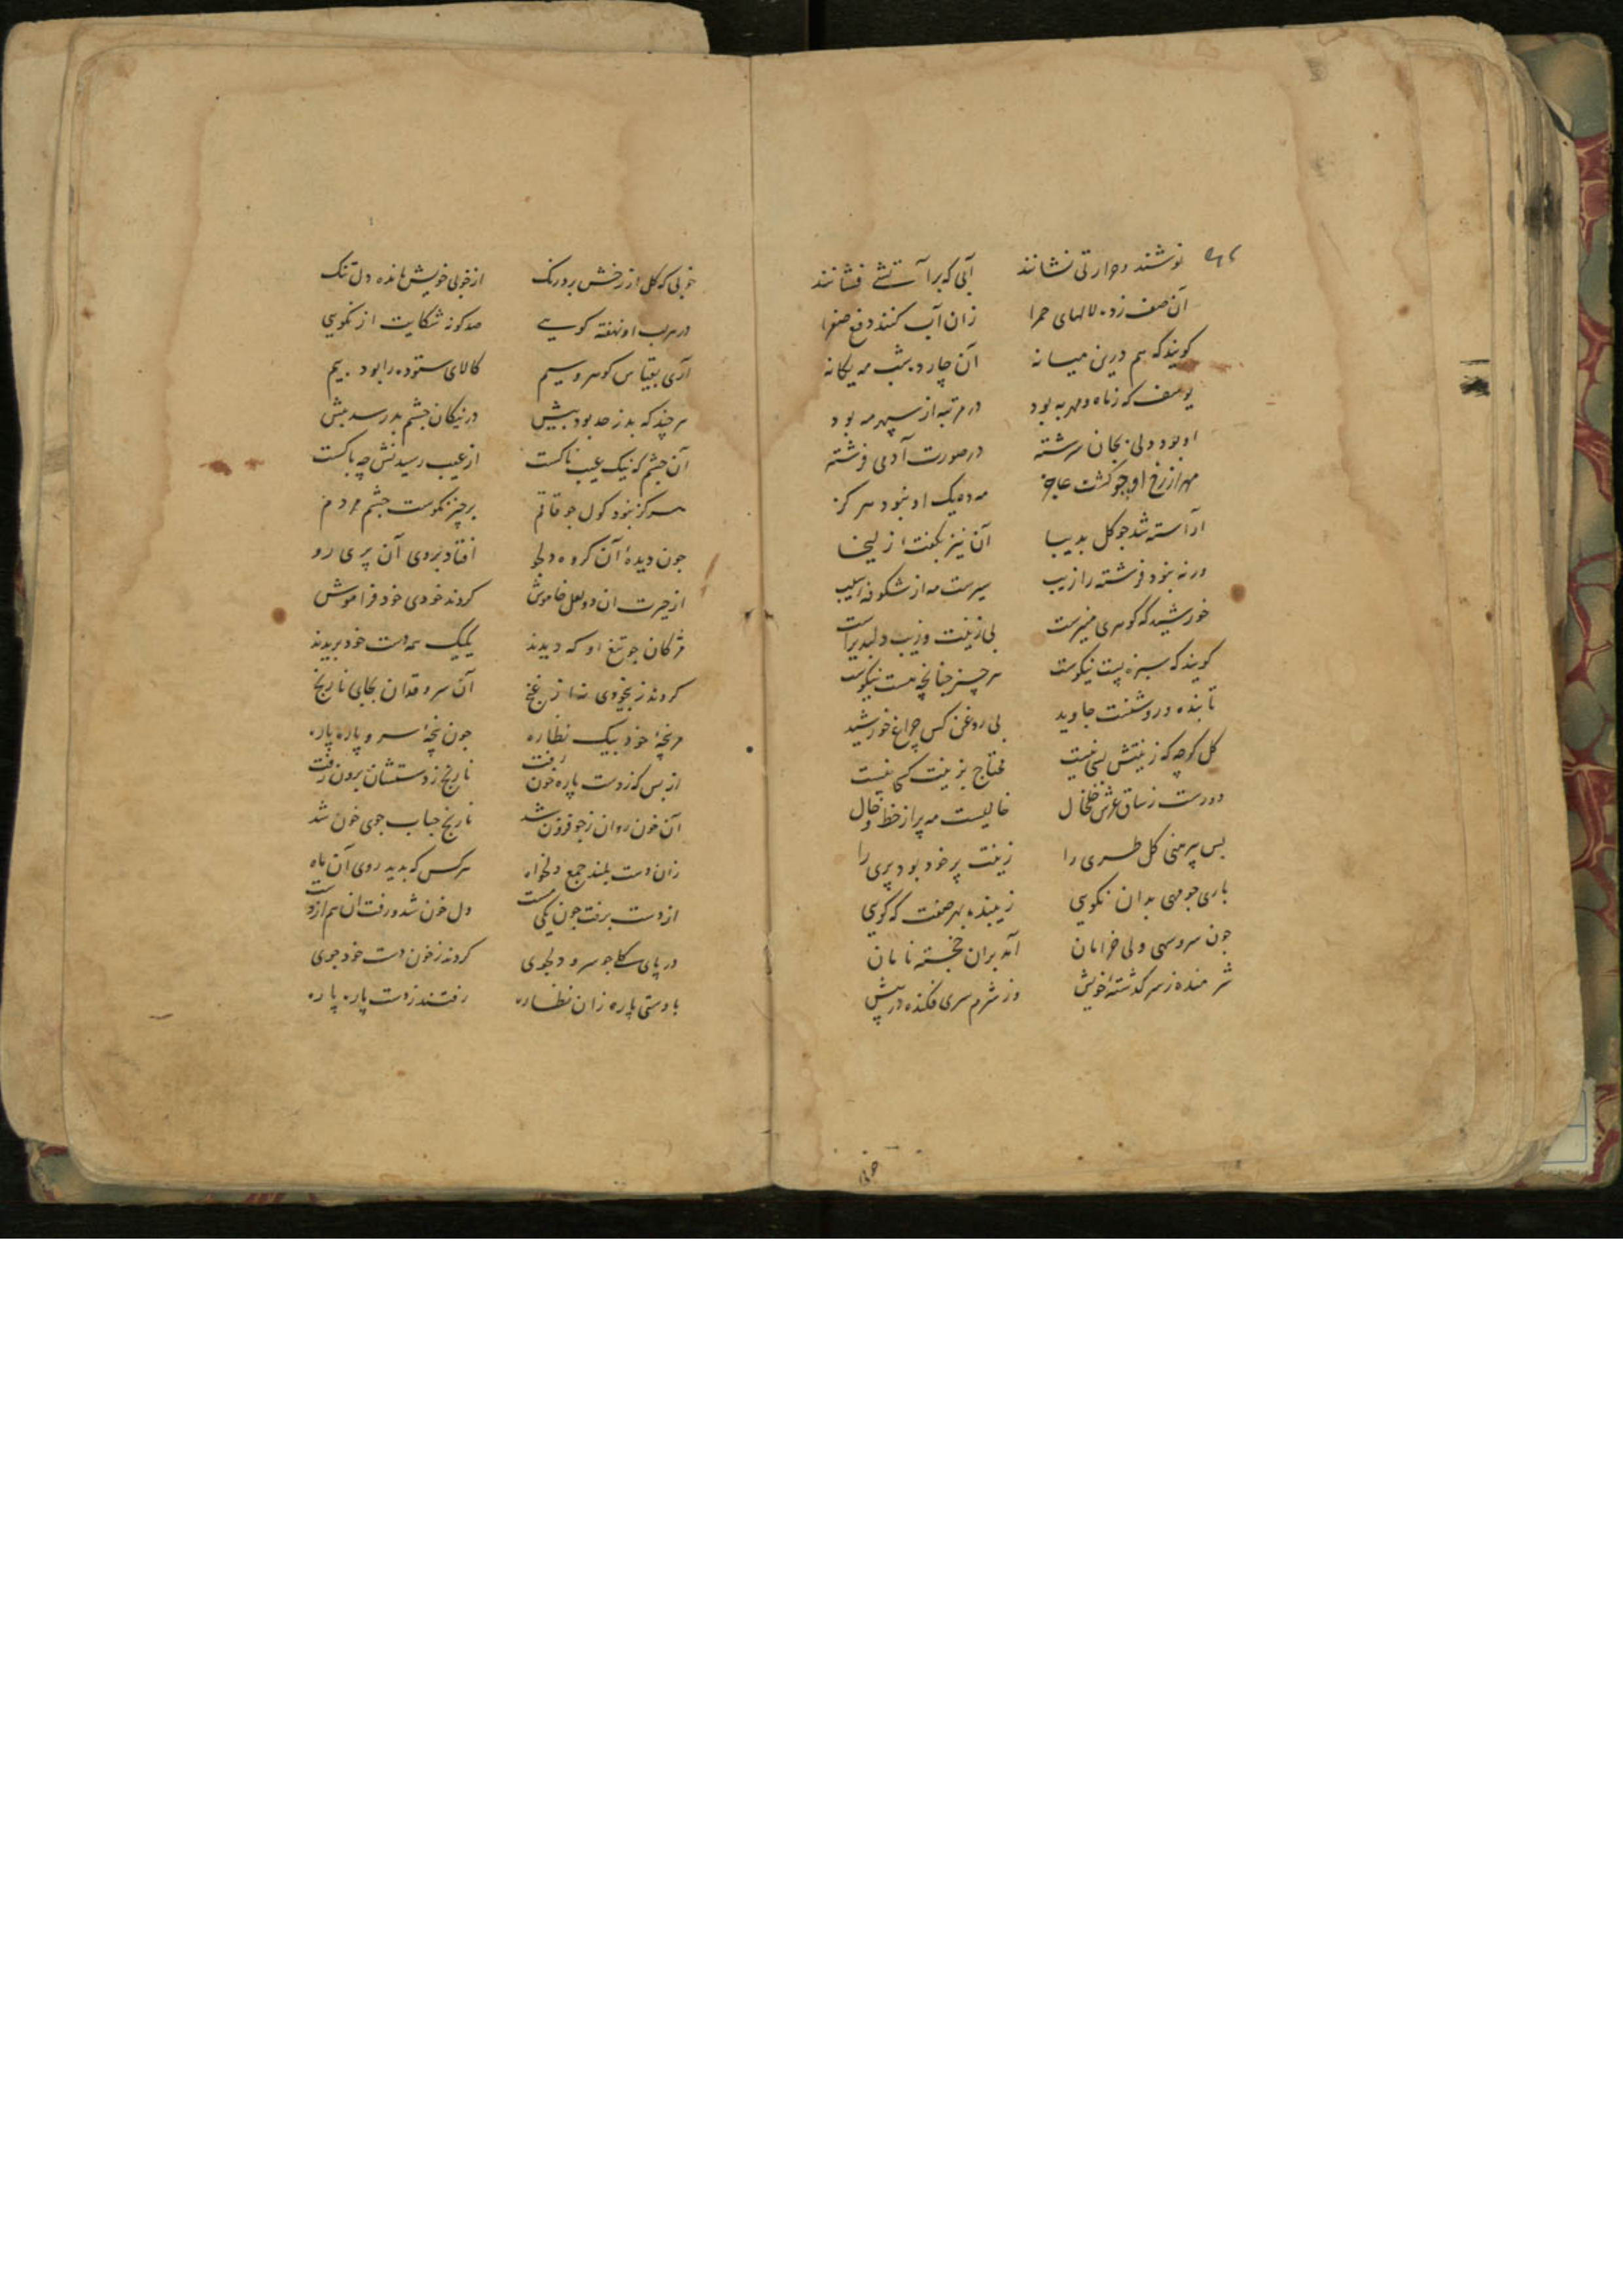 نوشند و حرارتی نشانند آبی که بر آتشے فشانند
آن صف زده لالهای حمرا زان آب کنند دفع صفرا
کویند که هم درین میانه آن چارده شب مه یکانه
یوسف که ز ماه و مهر به بود در مرتبه از سپهر مه بود
او بود ولی بجان سرشته در صورت آدمی فرشته
مهر از رخ او چو کشت عاجز مه ده یک او نبود هرکز
آراسته شد جو کل بدیبا آن نیز بکفت از لیخا
ورنه نبود فرشته را زیب سیرست مه از شکوفه سیب
خورشید که کوهری منیرست بی زینت و زیب دلپذیرست
کویند که سبزه پست نیکوست هر چیز چنانچه هست نیکوست
تابنده و روشنست جاوید بی روغن کس چراغ خورشید
کل کرچه که زینتش بسی نیست محتاج بزینت کسی نیست
دورست ز ساق عرش خلخال خالیست مه پر از خط و خال
بس پیرهنی کل طری را زینت پر خود بود پری را
باری جو مهی بدان نکویی زیبنده بهر صفت که کویی
جون سرو سهی ولی خرامان آمد بران خجسته نامان
شرمنده ز سر کذشتۀ خویش وز شرم سری فکنده در پیش
خوبی که کل از رخش برد رنک از خوبی خویش مانده دل تنک
در هر لب او نهفته کویے صد کونه شکایت از نکویی
آری بقیاس کوهر و سیم کالای ستوده را بود بیم
هر چند که بد ز حد بود بیش در نیکان چشم بد رسد بیش
آن چشم که نیک عیب ناکست از عیب رسیدنش چه باکست
هرکز نبود کول جو قاقم بر چیز نکوست چشم مردم
جون دیدۀ آن کروه دلجو افتاد بروی آن پری رو
از حیرت آن دو لعل خاموش کردند خودی خود فراموش
مژکان جو تیغ او که دیدند یکیک همه دست خود بریدند
کردند ز بیخودی نه از غنج آن سرو قدان بجای نارنج
هر پنجۀ خود بیک نظاره جون پنجۀ سرو پاره پاره
از بس که ز دست پاره خون رفت نارنج ز دستشان برون رفت
آن خون روان ز جو فزون شد نارنج حباب جوی خون شد
زان دست بلند جمع دلخواه هرکس که بدید روی آن ماه
از دست برفت جون یکی مست دل خون شد و رفت آن هم از دست
در پای کلا جو سرو دلجوی کردند ز خون دست خود جوی
با دستی پاره زان نظاره رفتند ز دست پاره پاره